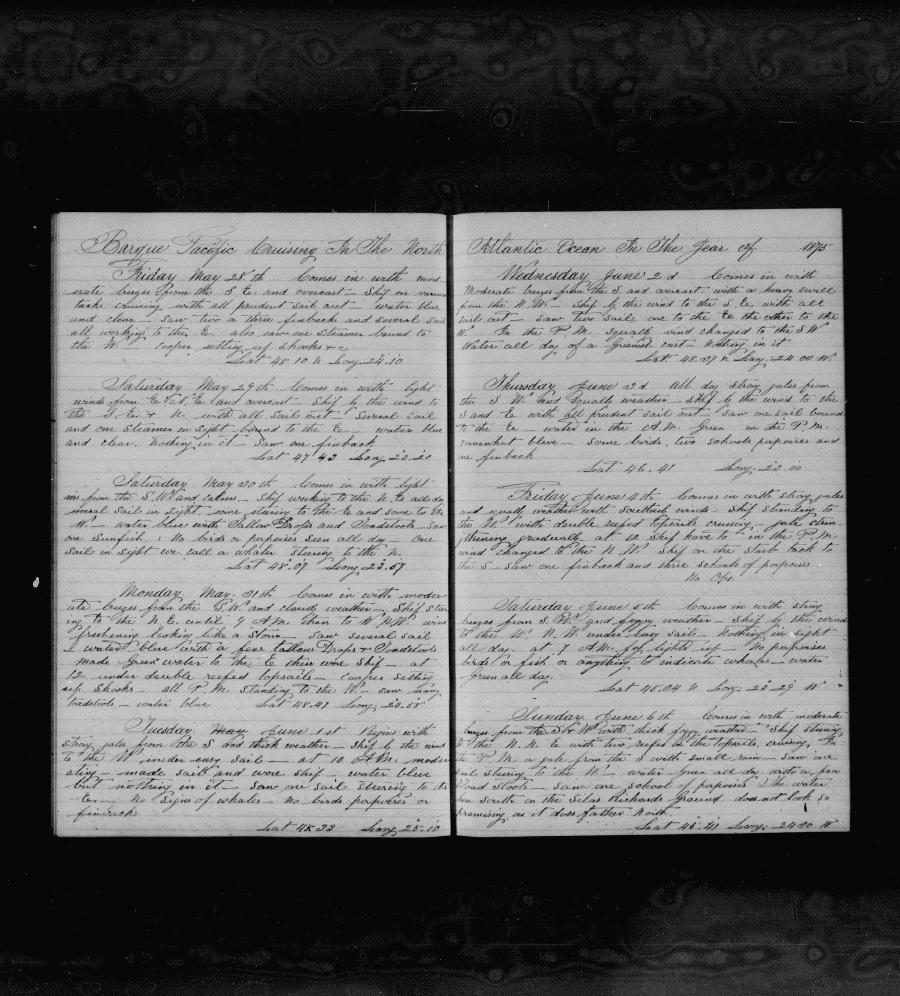 Barque Pacific Cruising In The North
Friday May 28th Comes in with mod
erate breezes from the S.E. and overcast - Ship on various
tacks cruising with all prudent sail out - water blue
and clear - saw two or three finbacks and several sail
all working to the E. also saw one steamer bound to
the W - Cooper setting up shooks &c
Lat 48.10 N Long 24.10
Saturday May 29th Comes in with light
winds from and overcast - Ship by the wind to
the & N. with all sail out - Several sail
and one steamer in sight bound to the E - water blue
and clear. Nothing in it - Saw one finback
Lat 47 42 Long 23.20
Saturday May 30th Comes in with light
airs from the S.W. and calms - Ship working to the N.E. all day
several sail in sight some steering to the E and some to the
W. - water blue with Tallow Drops and Toadstools - saw
one sunfish : No birds or porpoises seen all day - One
sail in sight we call a whaler steering to the N.
Lat 48.07 Long 23.57
Monday May. 31th Comes in with moder
ate breezes from the S.W. and cloudy weather - Ship steer
ing to the N.E. until 9 A.M. then to W.N.W. wind
freshening looking like a storm - saw several sail
- water blue with a few tallow Drops & Toadstools
made green water to the E then wore ship - at
12 under double reefed topsails - Cooper setting
up shooks - all P.M. standing to the W - saw many
toadstools - water blue Lat 48.47 Long 23.58
Tuesday May June 1st Begins with
strong gales from the S and thick weather - Ship by the wind
to the W under easy sail - at 10 A.M. moder
ating - made sail and wore ship - water blue
but nothing in it - saw one sail steering to the
E - No signs of whales - no birds porpoises or
finbacks
Lat 48 33 Long 25.10
Atlantic Ocean In The Year Of 1875
Wednesday June 2d Comes in with
Moderate breezes from the S and overcast with a heavy swell
from the N.W. - ship by the wind to the S.E. with all
sail out - saw two sails one to the E the other to the
W. In the P.M. squally wind changed to the S.W
Water all day of a Greenish cast - Nothing in it
Lat 48.07 N Long. 24 00 W.
Thursday June 3d All day strong gales from
the S.W. and squally weather - Ship by the wind to the
S and E with all prudent sail out - saw one sail bound
to the E - water in the A.M. Green - in the P.M.
somewhat blue - some birds, two schools porpoises and
one finback
Lat 46.41 Long. 23.00
Friday June 4th Comes in with strong gales
and weather with Southerly winds - Ship standing to
the W with double reefed topsails cruising, gale stren
gthening gradually at 12 ship have to - in the P.M.
wind changed to the N.W. ship on the starb tack to
the S - saw one finback and three schools of porpoises
No Obs.
Saturday June 5th Comes in with strong
breezes from S.W. and foggy weather - Ship by the wind
to the W.N.W. under easy sail - Nothing in sight
all day. at 9 A.M. fog lights up - No porpoises
birds or fish or anything to indicate whales - water
green all day.
Lat 45.04 N Long. 23.29 W
Sunday June 6th Comes in with moderate
breezes from the S & W with thick foggy weather - Ship steering
to the N.N.E. with two reefs in the topsails, cruising, In
the P.M. a gale from the S with small rain - saw one
sail steering to the W - water green all day with a few
Toad Stools - saw one school of porpoises The water
here South on the Silas Richards Ground does not look so
promising as it does father North
Lat 45.41 Long. 24 30 W